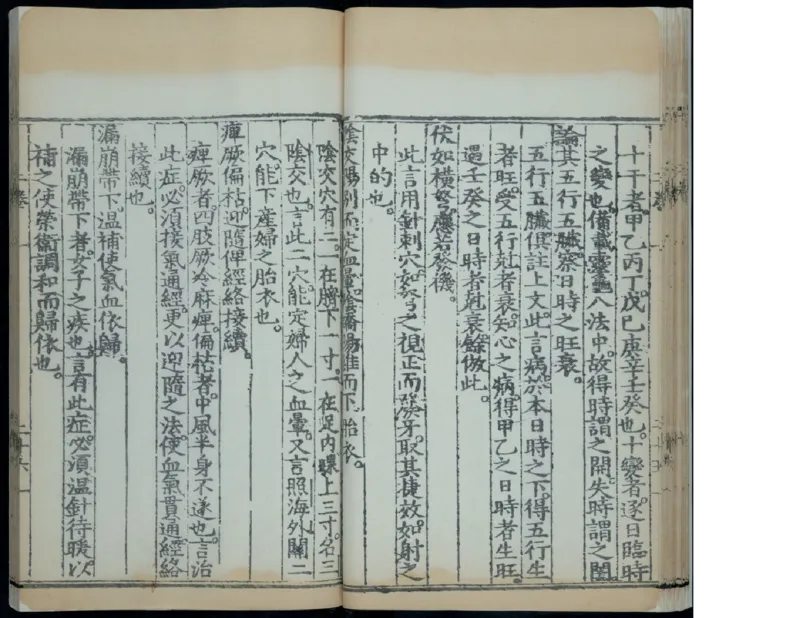 十干者甲乙丙丁戊己庚辛壬癸也。十變者逐日臨時
之變也。備載靈龜八法中。故得時謂之開。失時謂之闔。
論其五行五臟。察日時之旺衰。
五行五臟。俱註上文。此言病於本日時之下。得五行生
者旺。受五行尅者衰。知心之病。得甲乙之日時者生旺。
遇壬癸之日時者尅衰。餘倣此。
伏如橫弩。應若發機。
此言用針刺穴。如弩之視正而發牙。取其捷效。如射之
中的也。
陰交陽別而定血暈。陰蹻陽維而下胎衣。
陰交穴有二。一在臍下一寸。一在足內踝上三寸。名三
陰交也。言此二穴。能定婦人之血暈。又言照海外關二
穴。能下產婦之胎衣也。
痺厥偏枯。迎隨俾經絡接續。
痺厥者。四肢厥冷麻痺。偏枯者。中風半身不遂也。言治
此症。必須接氣通經。更以迎隨之法。使血氣貫通。經絡
接續也。
漏崩帶下。溫補使氣血依歸。
漏崩帶下者。女子之疾也。言有此症。必須溫針待暖以
補之。使榮衛調和而歸依也。